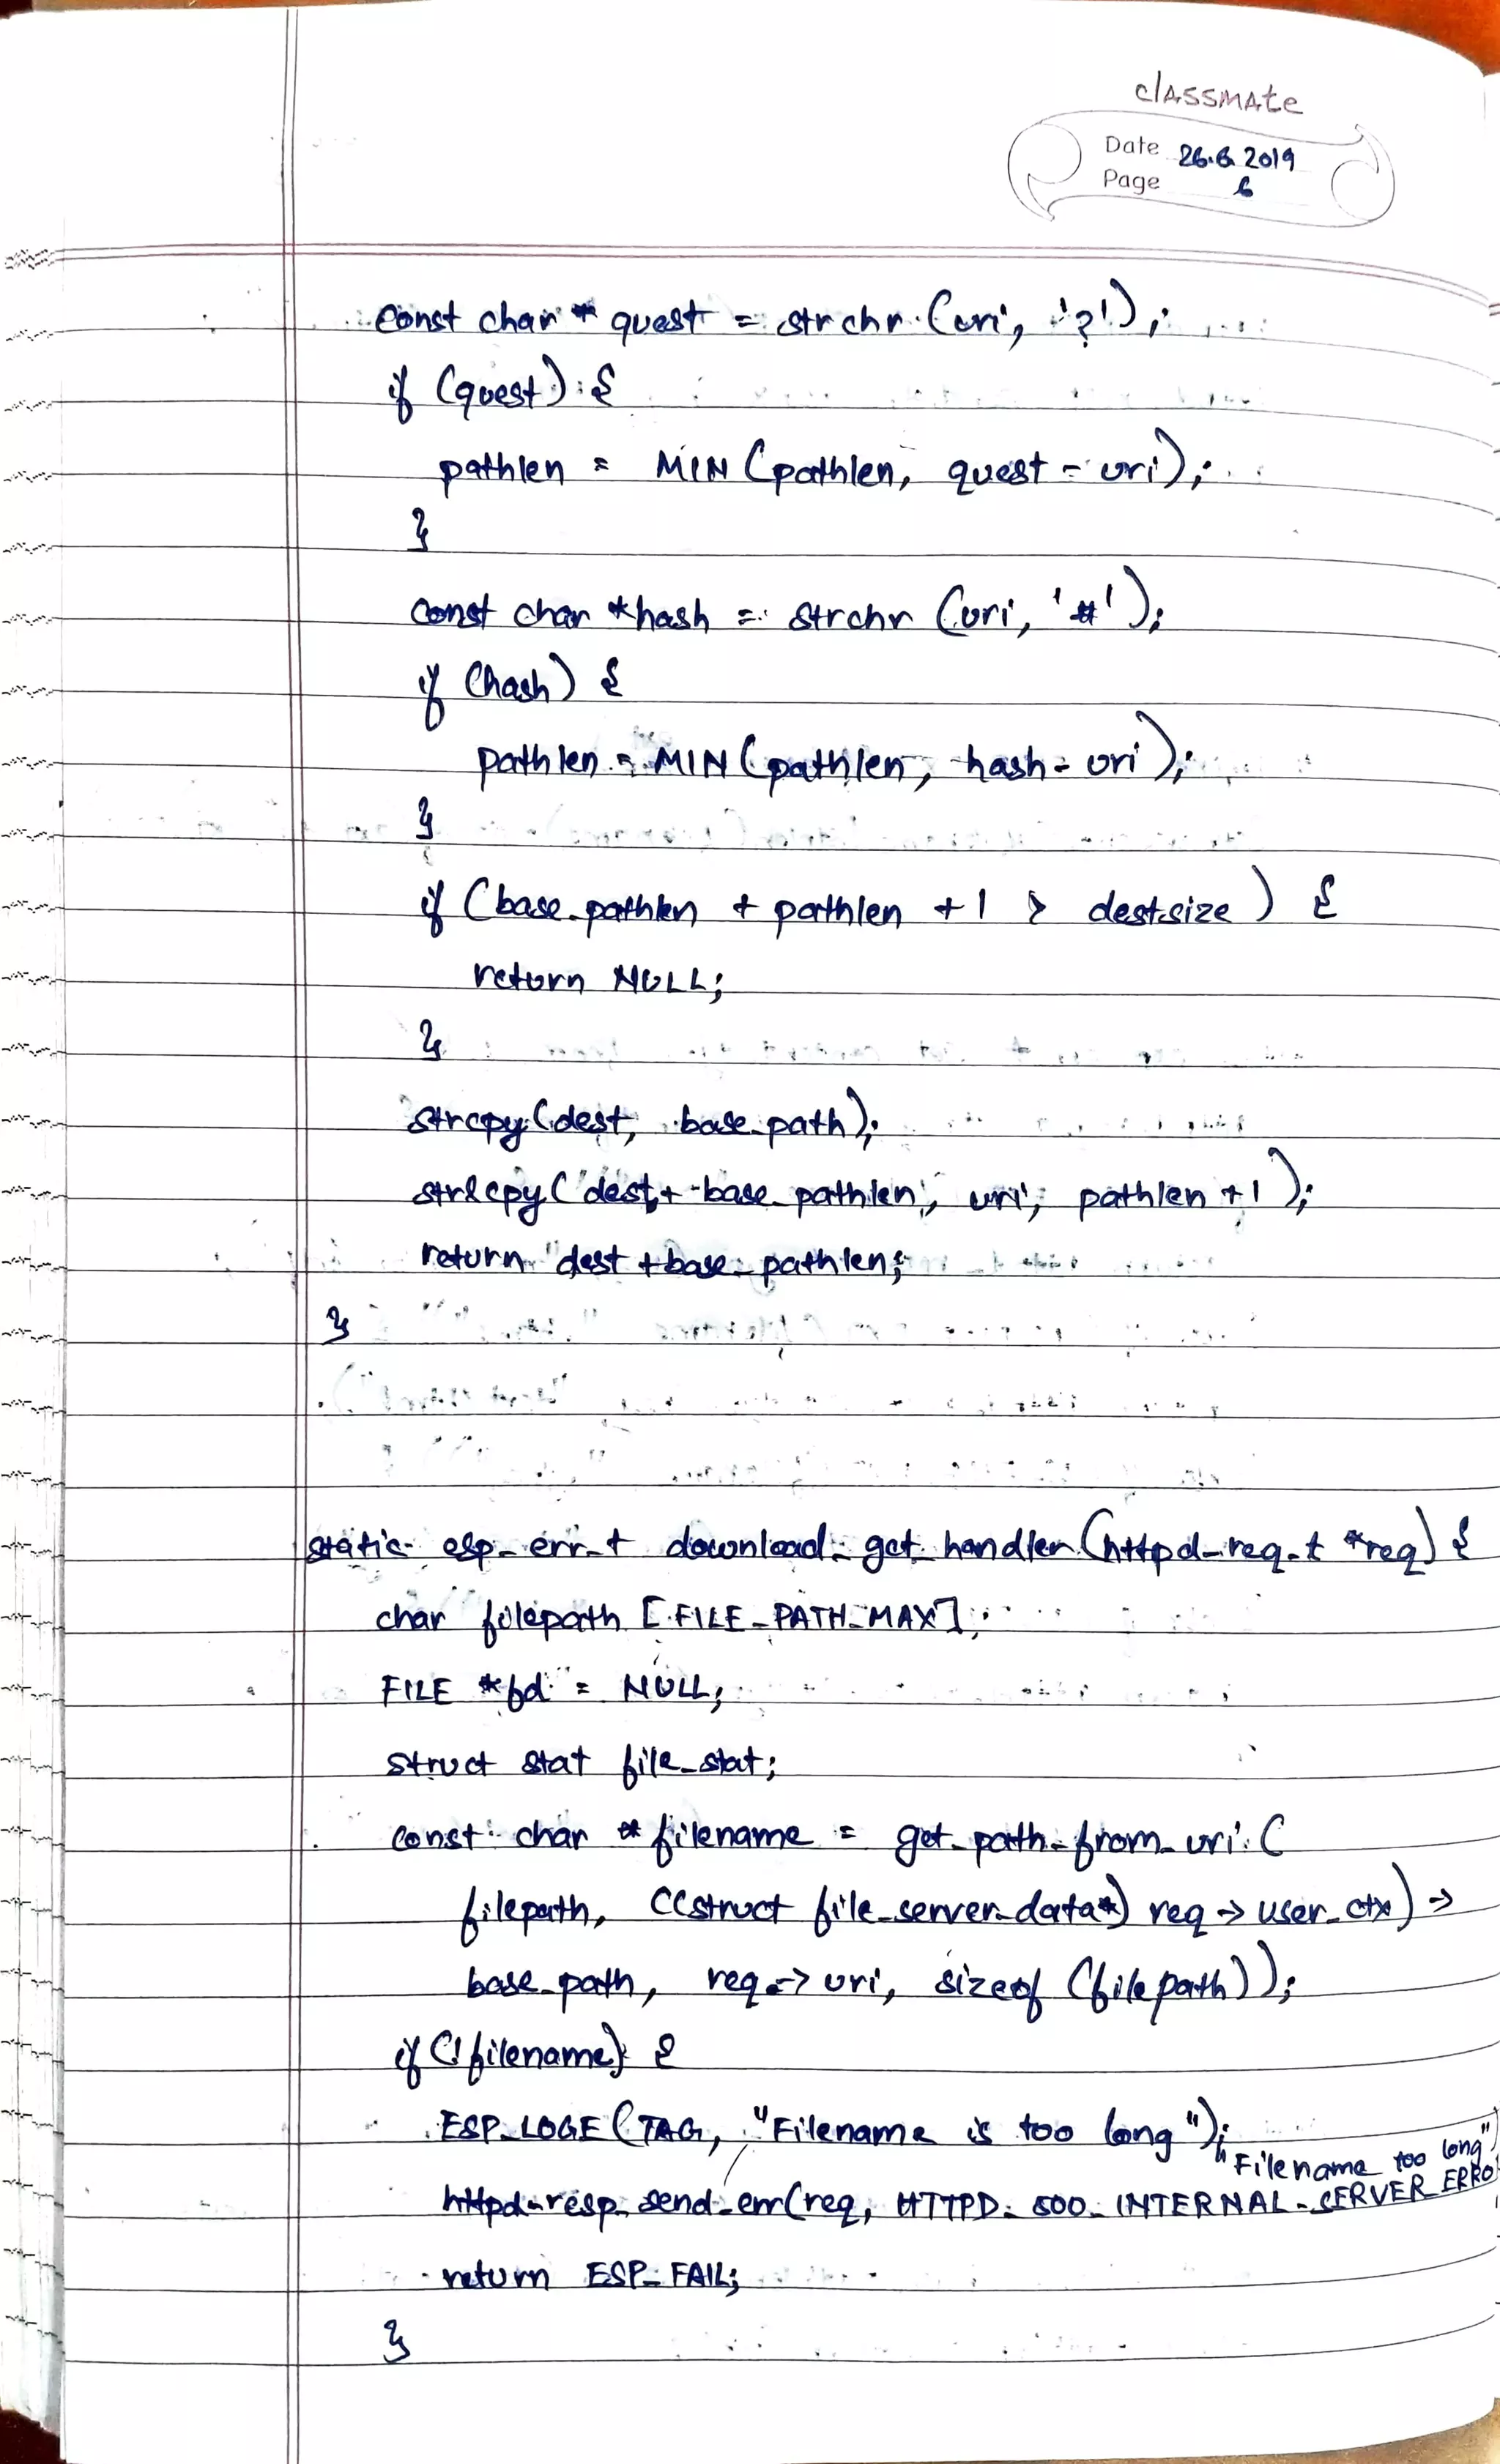 classmate
Date 26.6.2019
Page 6
const char * quest = strchr (uri, '?');
if (quest) {
pathlen = MIN (pathlen, quest - uri);
}
const char *hash = strchr (uri, '#');
if (hash) {
pathlen = MIN (pathlen, hash - uri);
}
if (base_pathlen + pathlen + 1 > destsize) {
return NULL;
}
strcpy (dest, base_path);
strlcpy (dest + base_pathlen, uri, pathlen + 1);
return dest + base_pathlen;
}
static esp_err_t download_get_handler (httpd_req_t *req) {
char filepath [FILE_PATH_MAX];
FILE *fd = NULL;
struct stat file_stat;
const char * filename = get_path_from_uri (
filepath, ((struct file_server_data*) req -> user_ctx) ->
base_path, req -> uri, sizeof (filepath));
if (!filename) {
ESP_LOGE (TAG, "Filename is too long");
"Filename too long")
httpd_resp_send_err (req, HTTPD_500_INTERNAL_SERVER_ERRO
return ESP_FAIL;
}